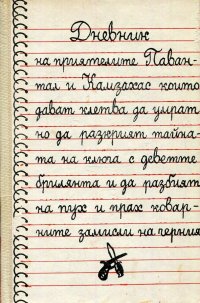 Дневник
на приятелите Паван-
тал и Камзахас които
дават клетва да умрат
но да разкрият тайна-
та на ключа с деветте
брилянта и да разбият
на пух и прах ковар-
ните замисли на черния